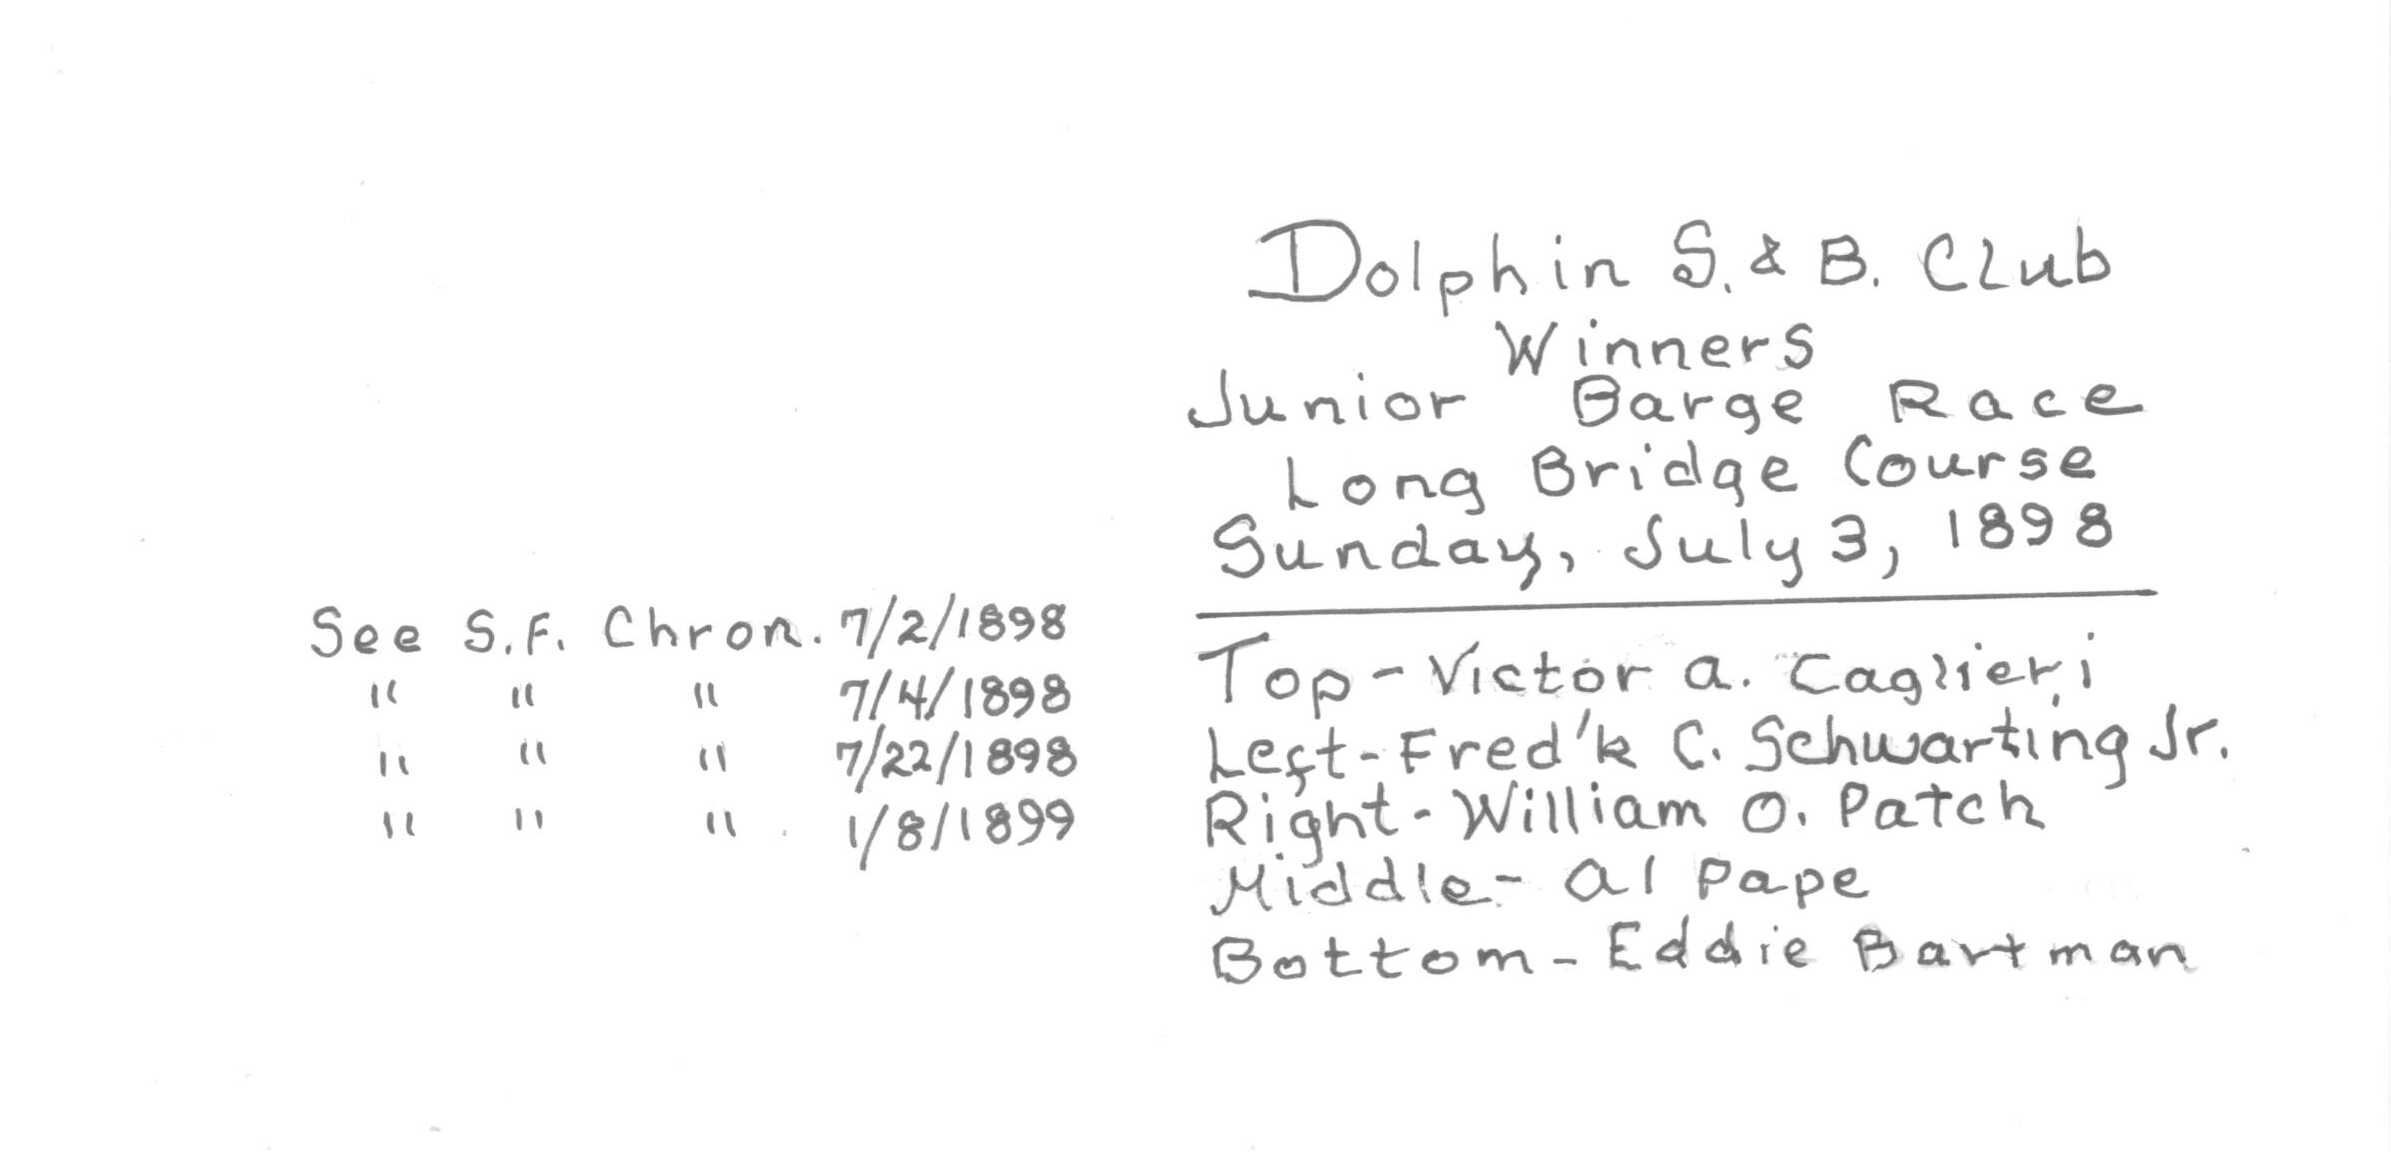 Dolphin S. & B. Club
Winners
Junior Barge Race
Long Bridge Course
Sunday, July 3, 1898
Top - Victor A. Caglieri
Left - Fred'k C. Schwarting Jr.
Right - William O. Patch
Middle - Al Pape
Bottom - Eddie Bartman
See S.F. Chron. 7/2/1898
" " " 7/4/1898
" " " 7/22/1898
" " " 1/8/1899